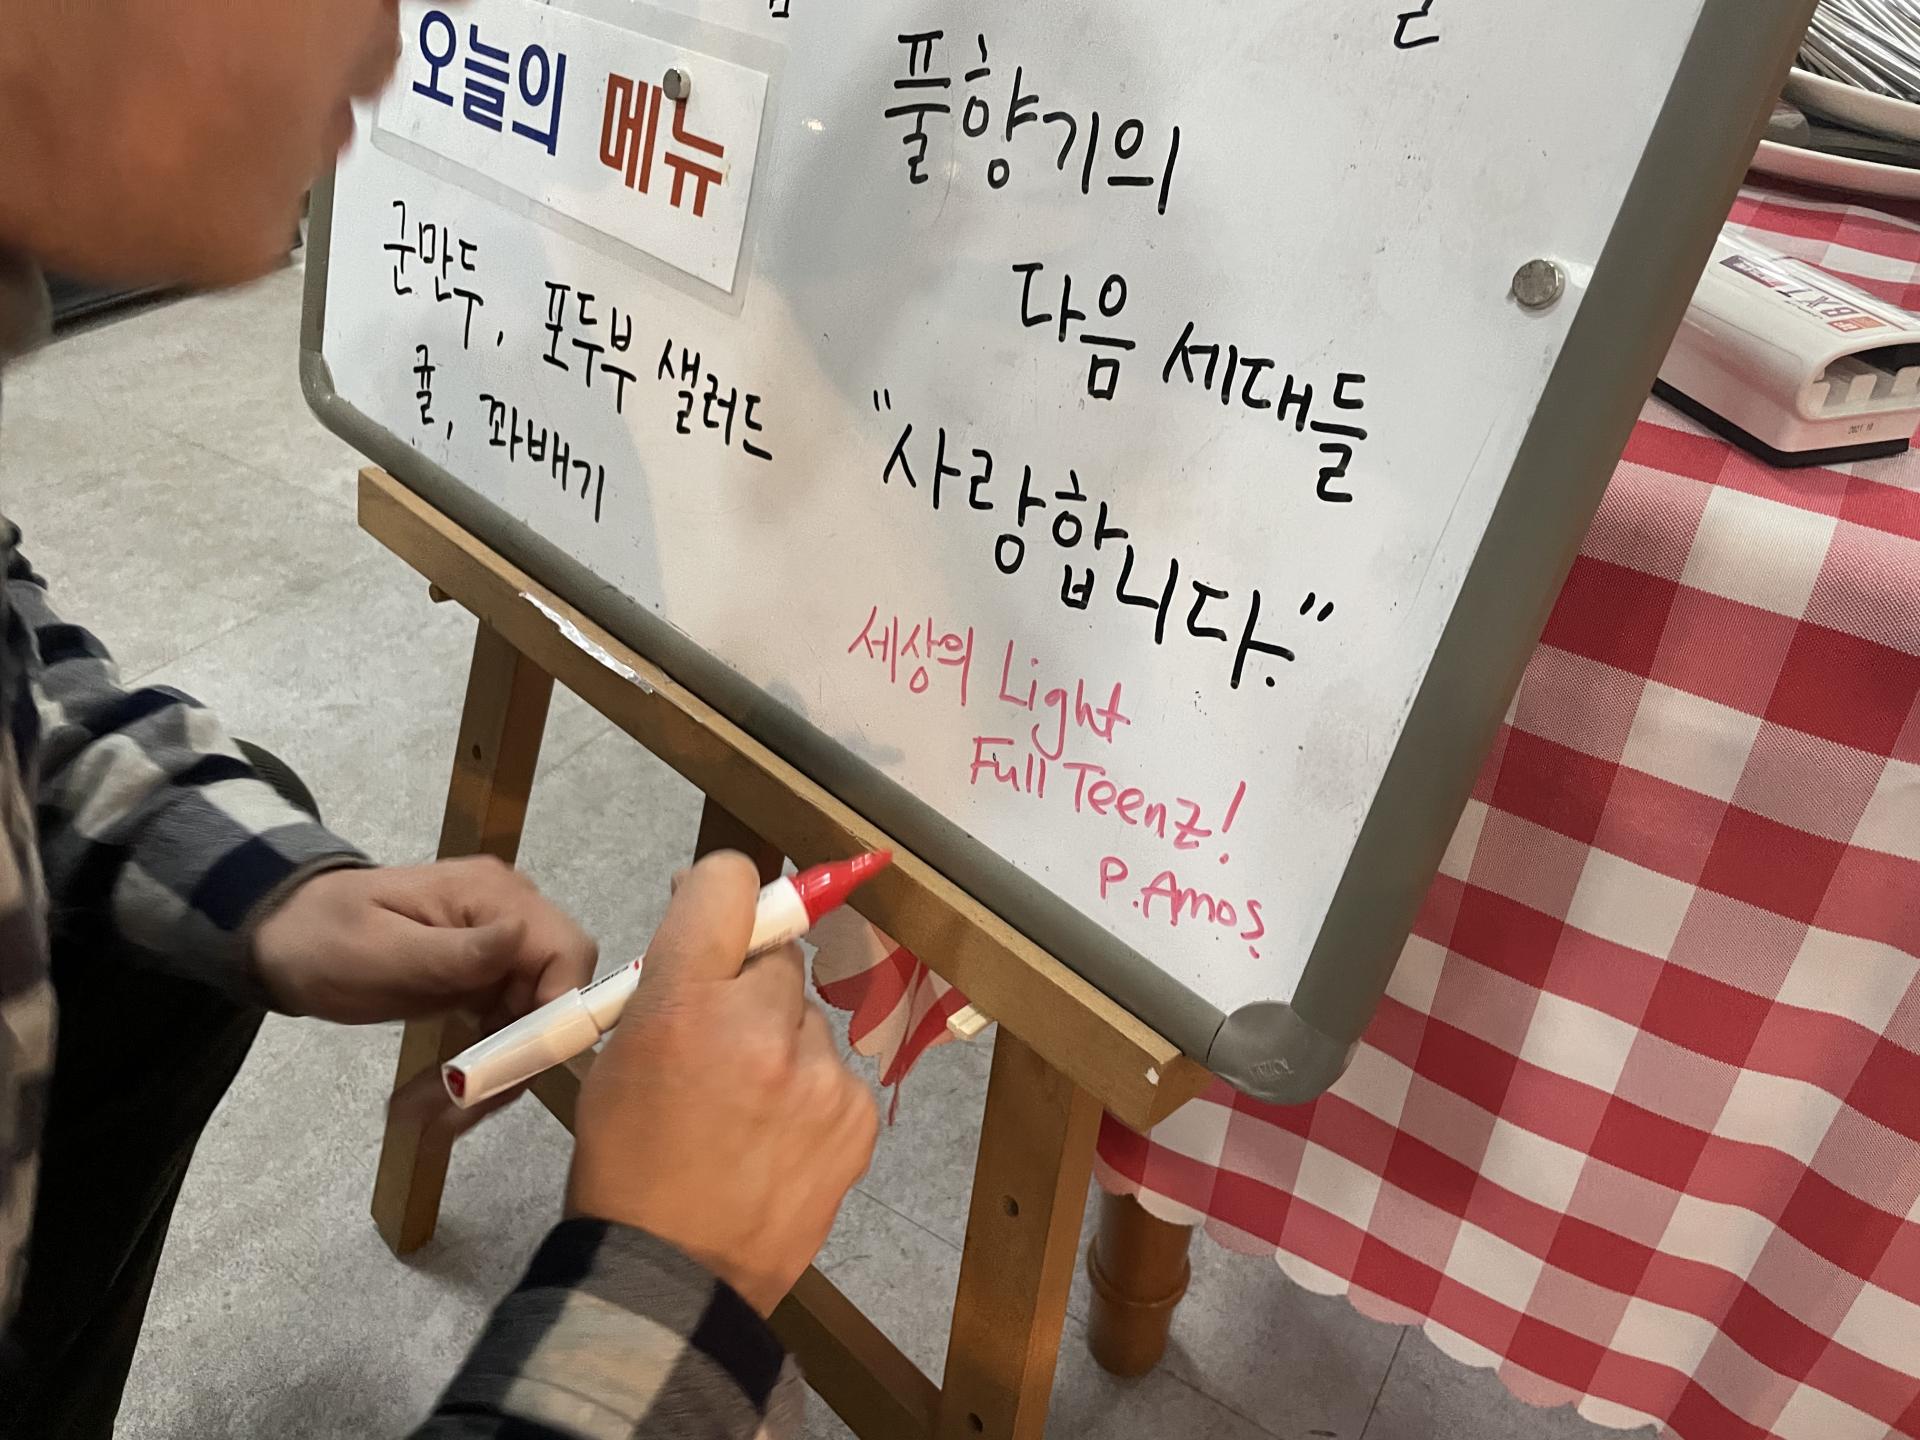 오늘의 메뉴
군만두, 포두부 샐러드
귤, 꽈배기
풀향기의
다음 세대들
"사랑합니다."
세상의 Light
Full Teenz!
P. Amos.